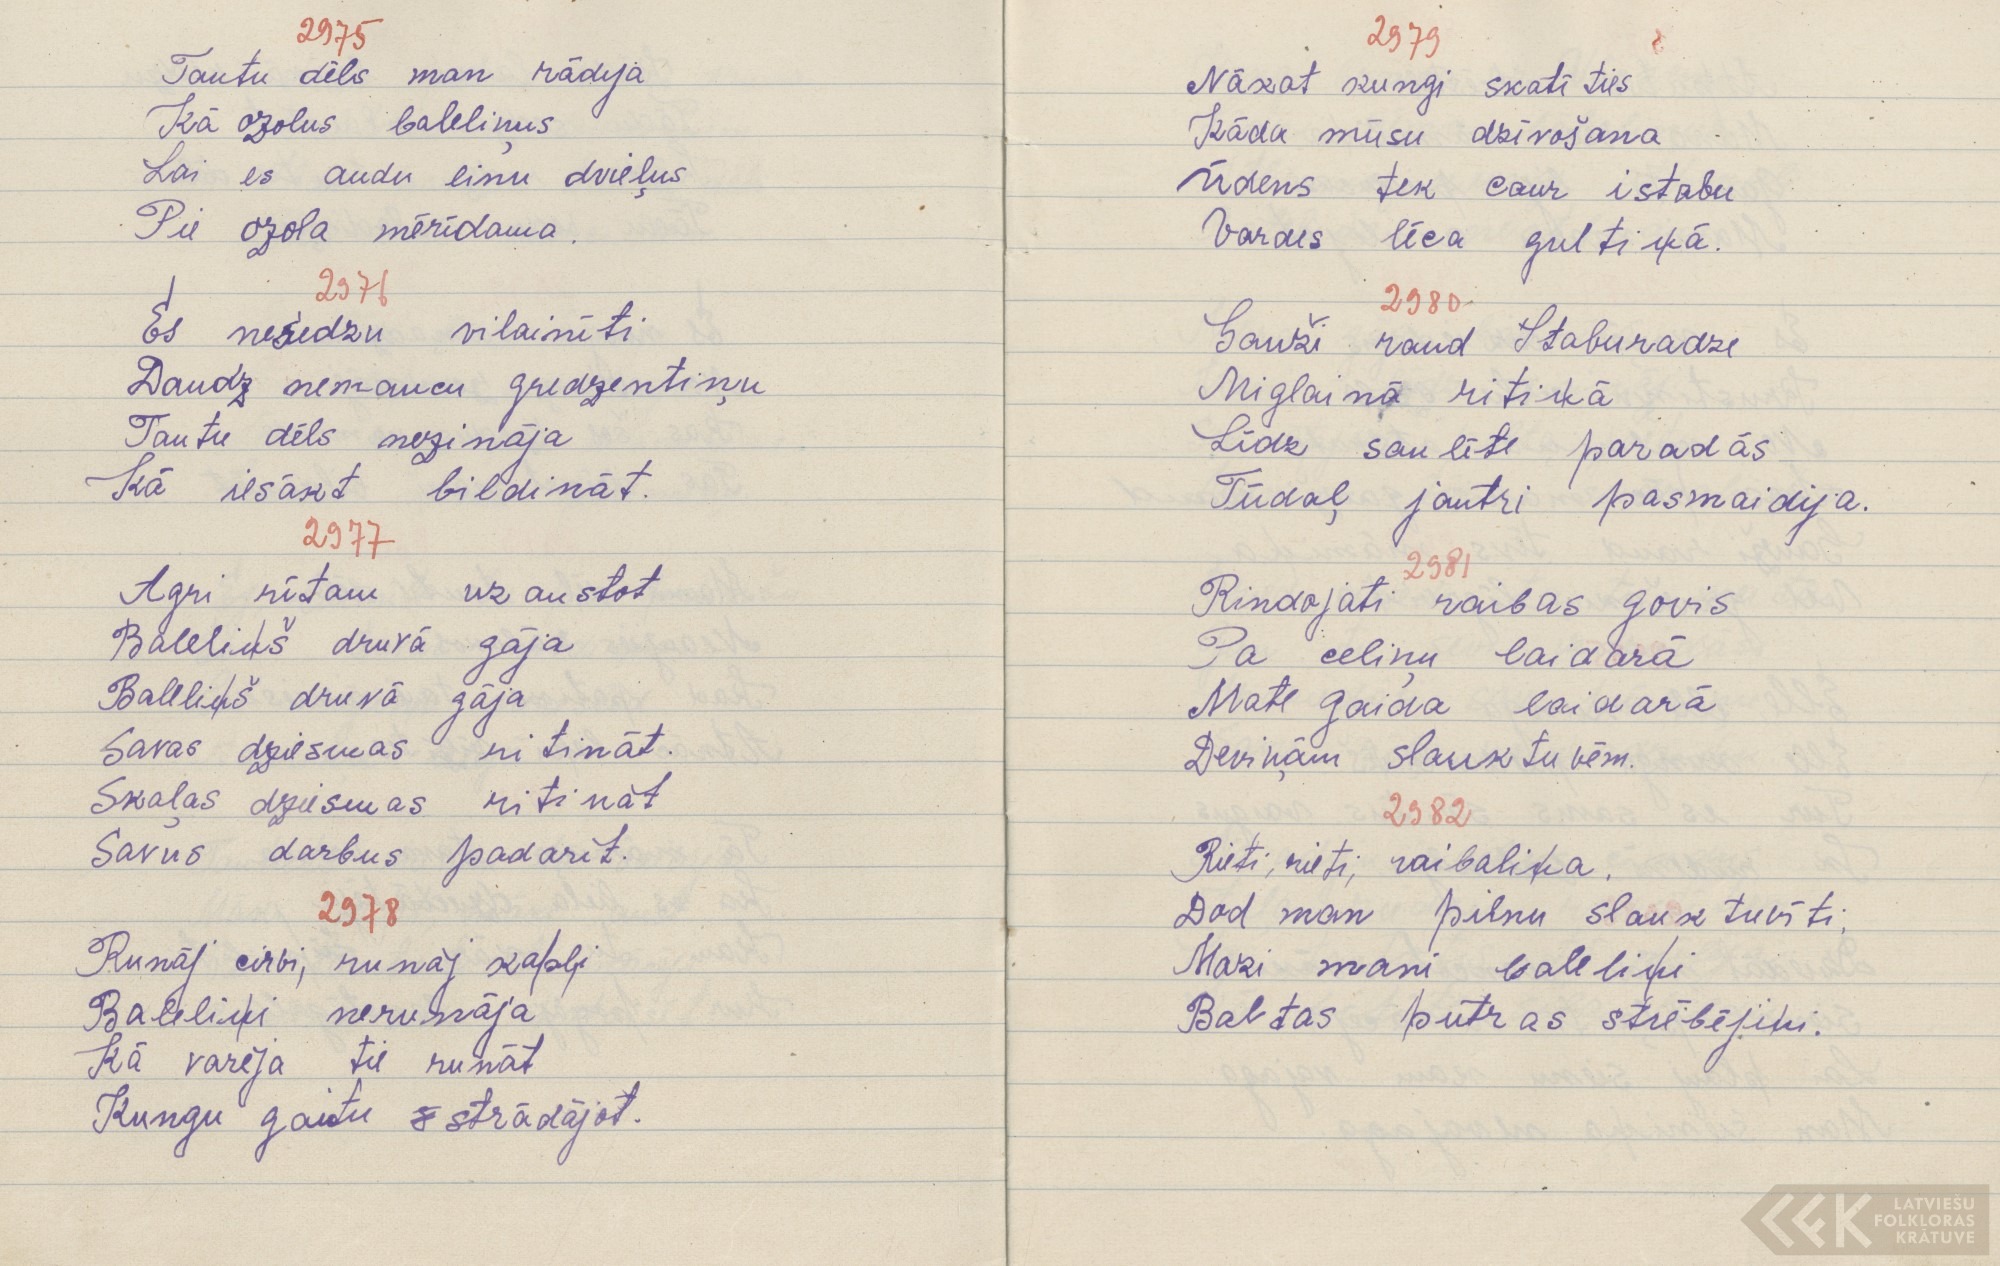 2975
Tautu dēls man rādija
Kā ozolus baleliņus
Lai es audu linu dvieļus
Pie ozola mērīdama.
2976
Es nesedzu vilainīti
Daudz nemaucu gredzentiņu
Tautu dēls nezināja
Kā iesākt bildināt.
2977
Agri rītam uzaustot
Baleliņš druvā gāja
Baleliņš druvā gāja
Savas dziesmas ritināt.
Skaļas dziesmas ritināt
Savus darbus padarīt.
2978
Runāj cirvi, runāj kapļi
Baleliņi nerunāja
Kā varēja tie runāt
Kungu gaitu strādājot.
2979
Nākat kungi skatīties
Kāda mūsu dzīvošana
Ūdens tek caur istabu
Vardes lēca gultiņā.
2980
Gauži raud Staburadze
Miglainā ritiņā
Līdz saulīte paradās
Tūdaļ jautri pasmaidija.
2981
Rindojati raibas govis
Pa celiņu laidarā
Mate gaida laidarā
Deviņām slauktuvēm.
2982
Rieti, rieti, raibaliņa,
Dod man pilnu slauktuvīti,
Mazi mani baleliņi
Baltas putras strēbējiņi.
LATVIEŠU
FOLKLORAS
KRĀTUVE